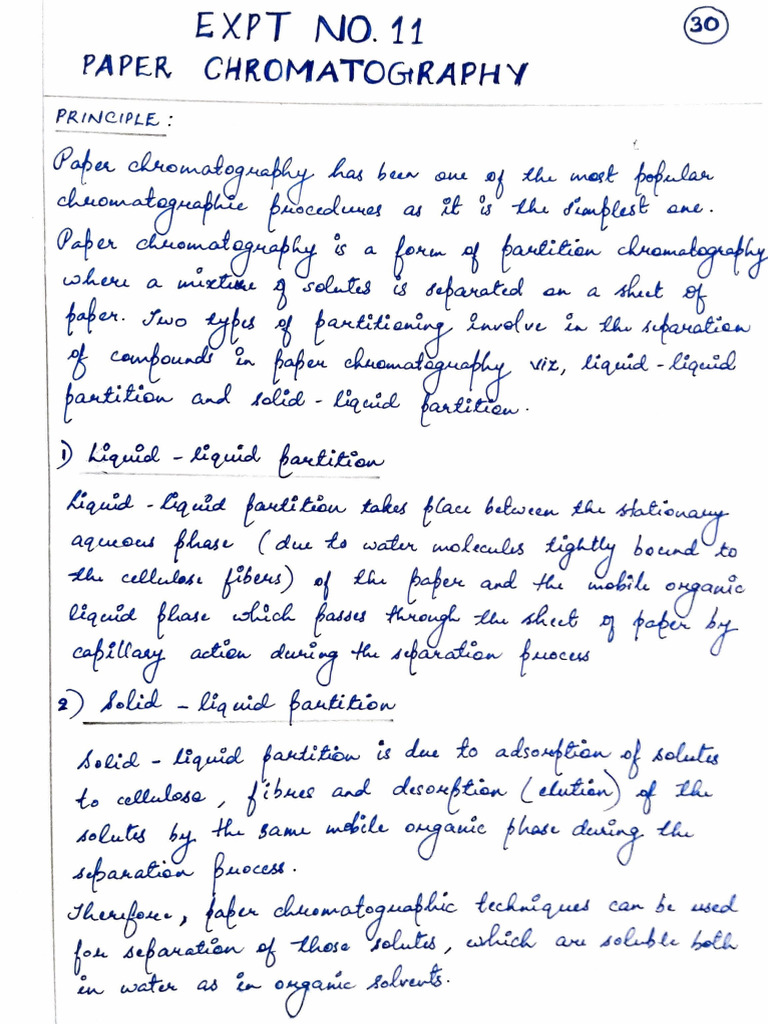 EXPT NO. 11
30
PAPER CHROMATOGRAPHY
PRINCIPLE:
Paper chromatography has been one of the most popular
chromatographic procedures as it is the simplest one.
Paper chromatography is a form of partition chromatography
where a mixture of solutes is separated on a sheet of
paper. Two types of partitioning involve in the separation
of compounds in paper chromatography viz, liquid-liquid
partition and solid-liquid partition.
1) Liquid-liquid partition
Liquid-Liquid partition takes place between the stationary
aqueous phase (due to water molecules tightly bound to
the cellulose fibers) of the paper and the mobile organic
liquid phase which passes through the sheet of paper by
capillary action during the separation process
2) Solid-liquid partition
Solid-liquid partition is due to adsorption of solutes
to cellulose, fibres and desorption (elution) of the
solutes by the same mobile organic phase during the
separation process.
Therefore, paper chromatographic techniques can be used
for separation of those solutes, which are soluble both
in water as in organic solvents.